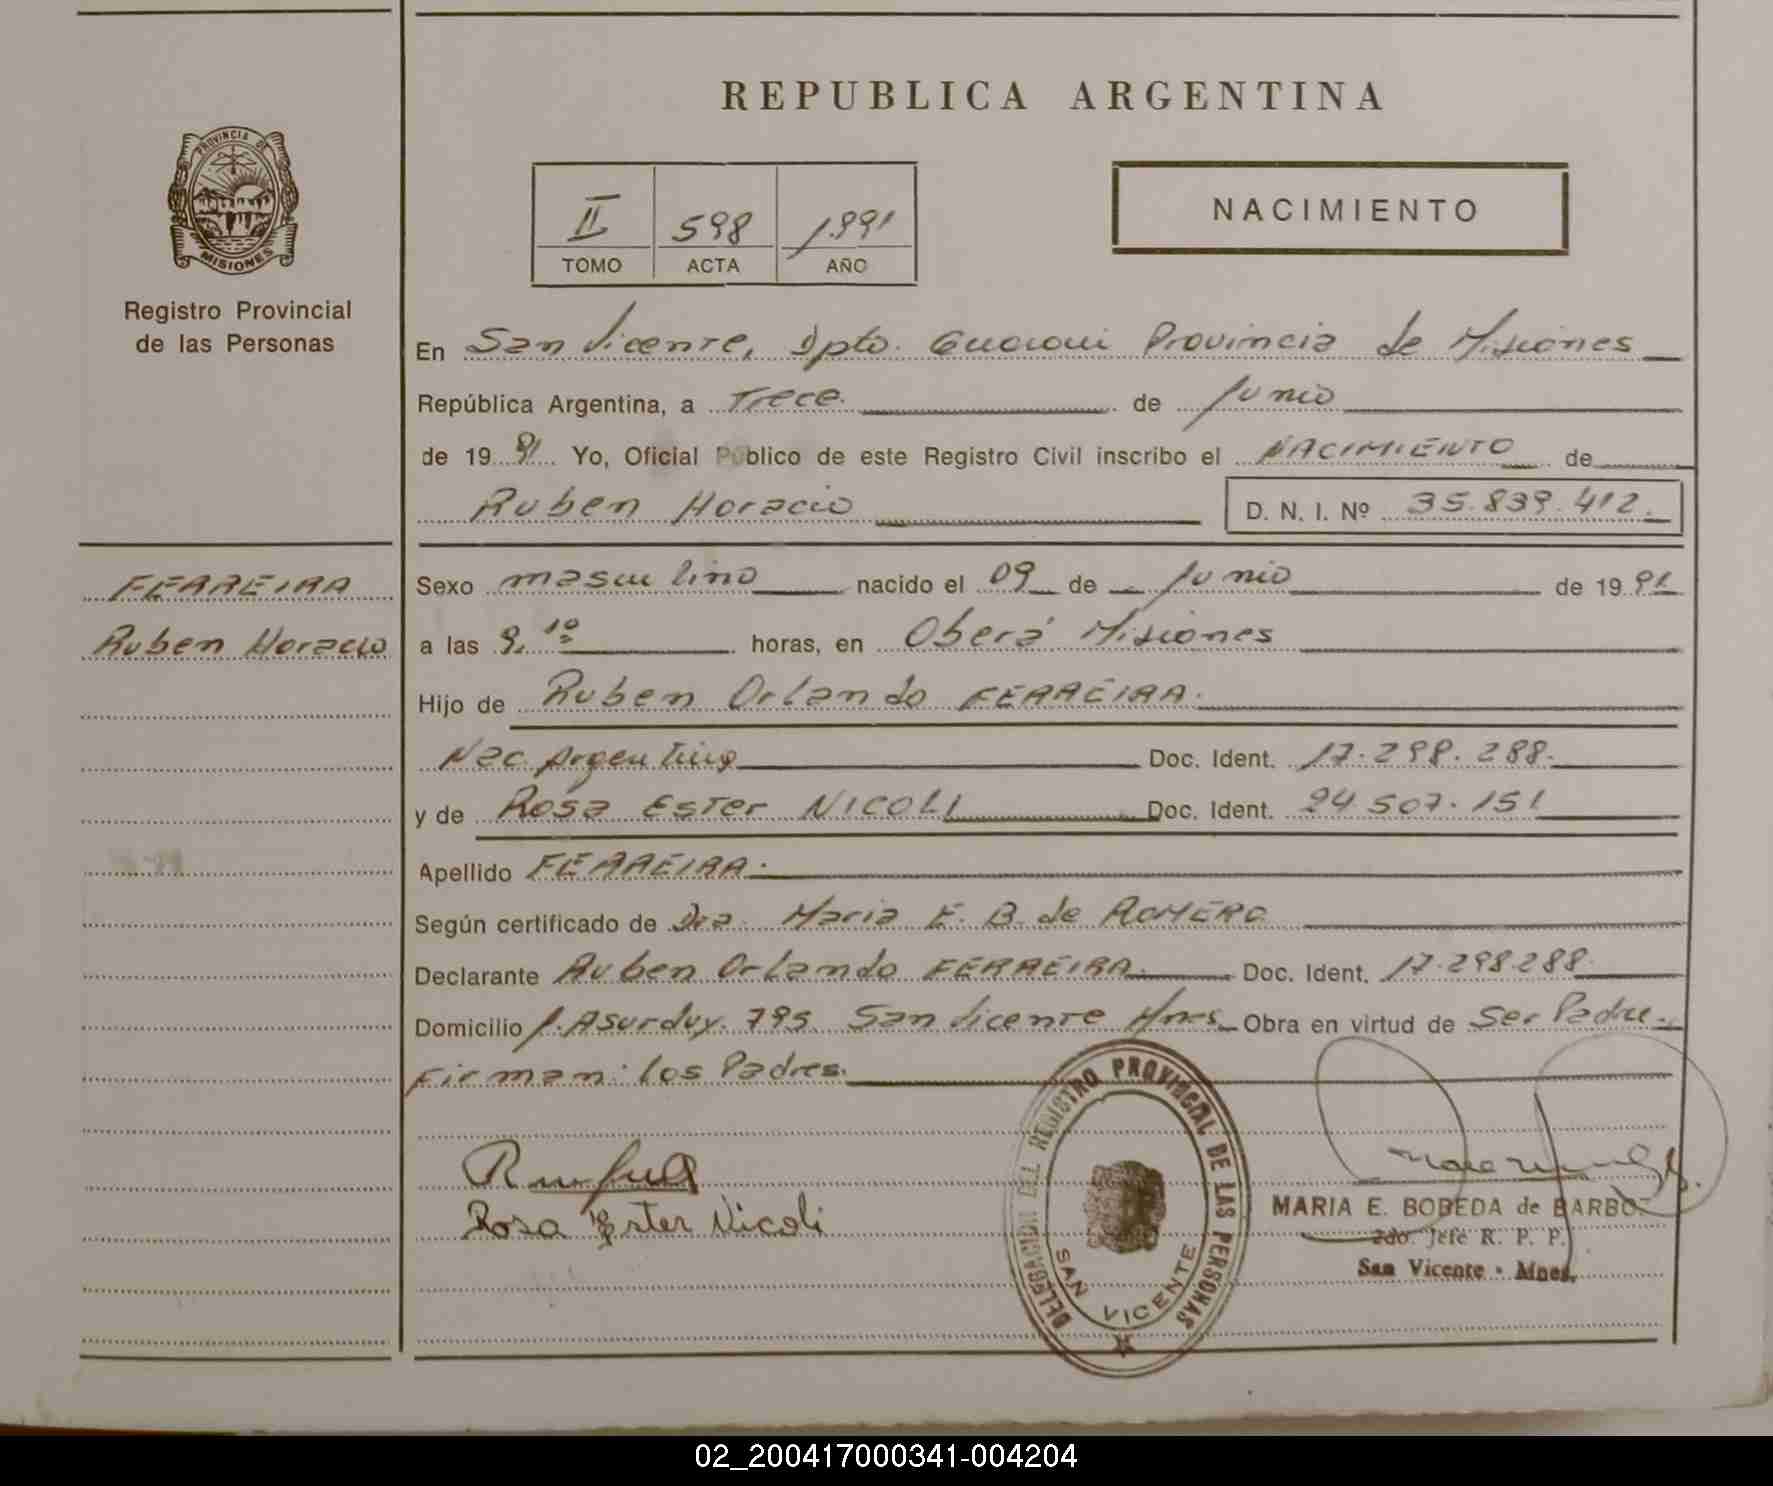 REPUBLICA ARGENTINA
PROVINCIA DE
MISIONES
Registro Provincial
de las Personas
II 598 1.991
TOMO ACTA AÑO
NACIMIENTO
En San Vicente, Dpto. Guarani Provincia de Misiones
República Argentina, a Trece. de Junio
de 19 91 Yo, Oficial Público de este Registro Civil inscribo el NACIMIENTO de
Ruben Horacio D. N. I. Nº 35.839.412.
FERREIRA
Ruben Horacio
Sexo masculino nacido el 09 de Junio de 19 91
a las 9,10 horas, en Oberá Misiones
Hijo de Ruben Orlando FERREIRA.
Nac. Argentino Doc. Ident. 17.298.288.
y de Rosa Ester NICOLI Doc. Ident. 24.507.151
Apellido FERREIRA.
Según certificado de Dra. Maria E. B. de ROMERO
Declarante Ruben Orlando FERREIRA. Doc. Ident. 17.298.288.
Domicilio J. Asurduy. 795 San Vicente Mnes. Obra en virtud de Ser Padre.
Firman: los Padres.
Rosa Ester Nicoli
DELEGACION DEL REGISTRO PROVINCIAL DE LAS PERSONAS
SAN VICENTE
MARIA E. BOBEDA de BARBO.
2do. Jefe R. P. P.
San Vicente - Mnes.
02_200417000341-004204